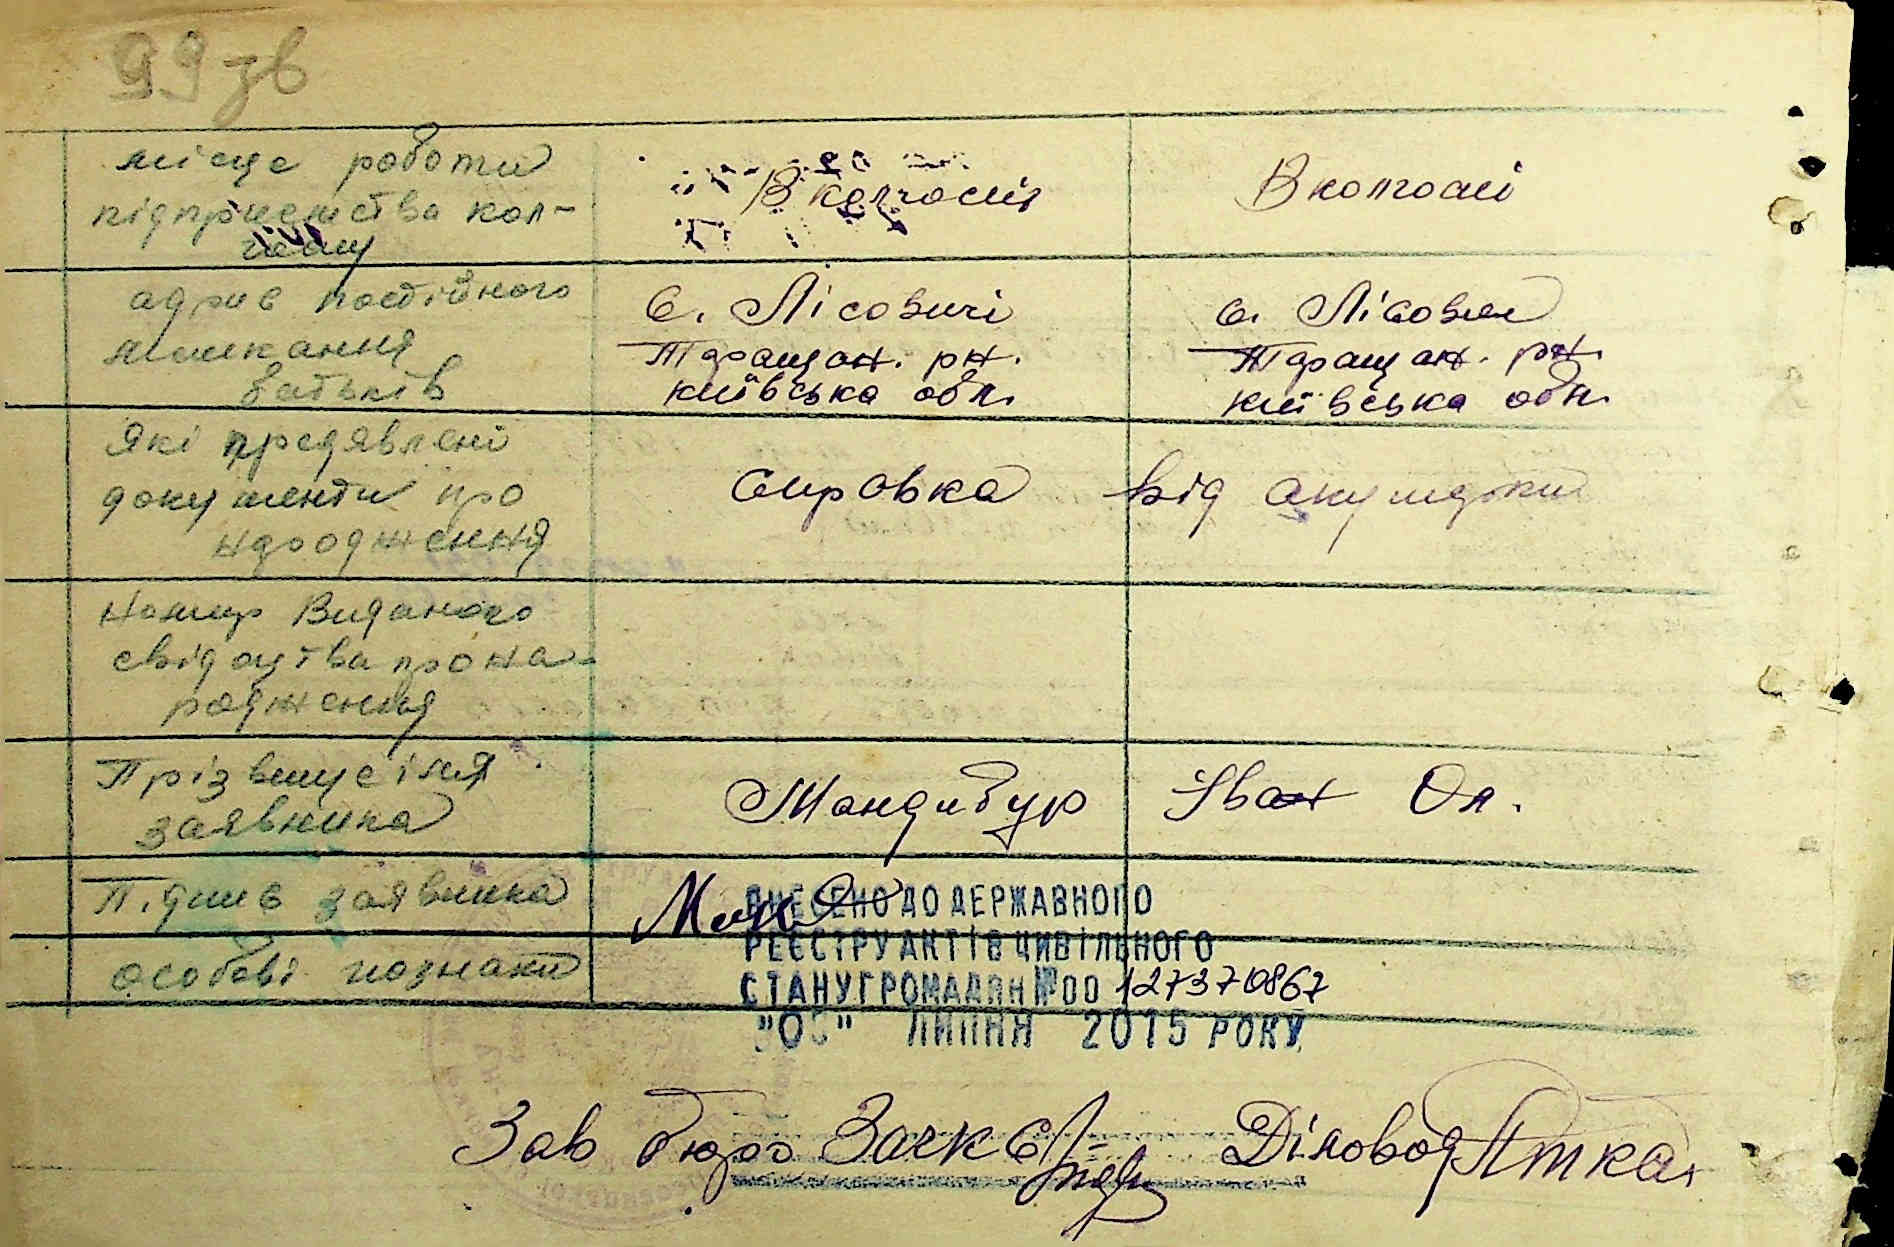 99 зв
місце роботи
підприємства кол-
госпу
В колгоспі
В колгоспі
адрис постійного
мешкання
батьків
с. Лісовичі
Таращан. рн.
київська обл.
с. Лісовичі
Таращан. рн.
київська обл.
Які предявлені
документи про
народження
Справка від акушерки
Номер Виданого
свідоцтва про на-
родження
Прізвище імя
заявника
Мандибур Іван Ол.
Підпис заявника
особові познаки
ВНЕСЕНО ДО ДЕРЖАВНОГО
РЕЄСТРУ АКТІВ ЦИВІЛЬНОГО
СТАНУ ГРОМАДЯН № 00 127370867
ЛИПНЯ 2015 РОКУ
Зав бюро Загк Діловод